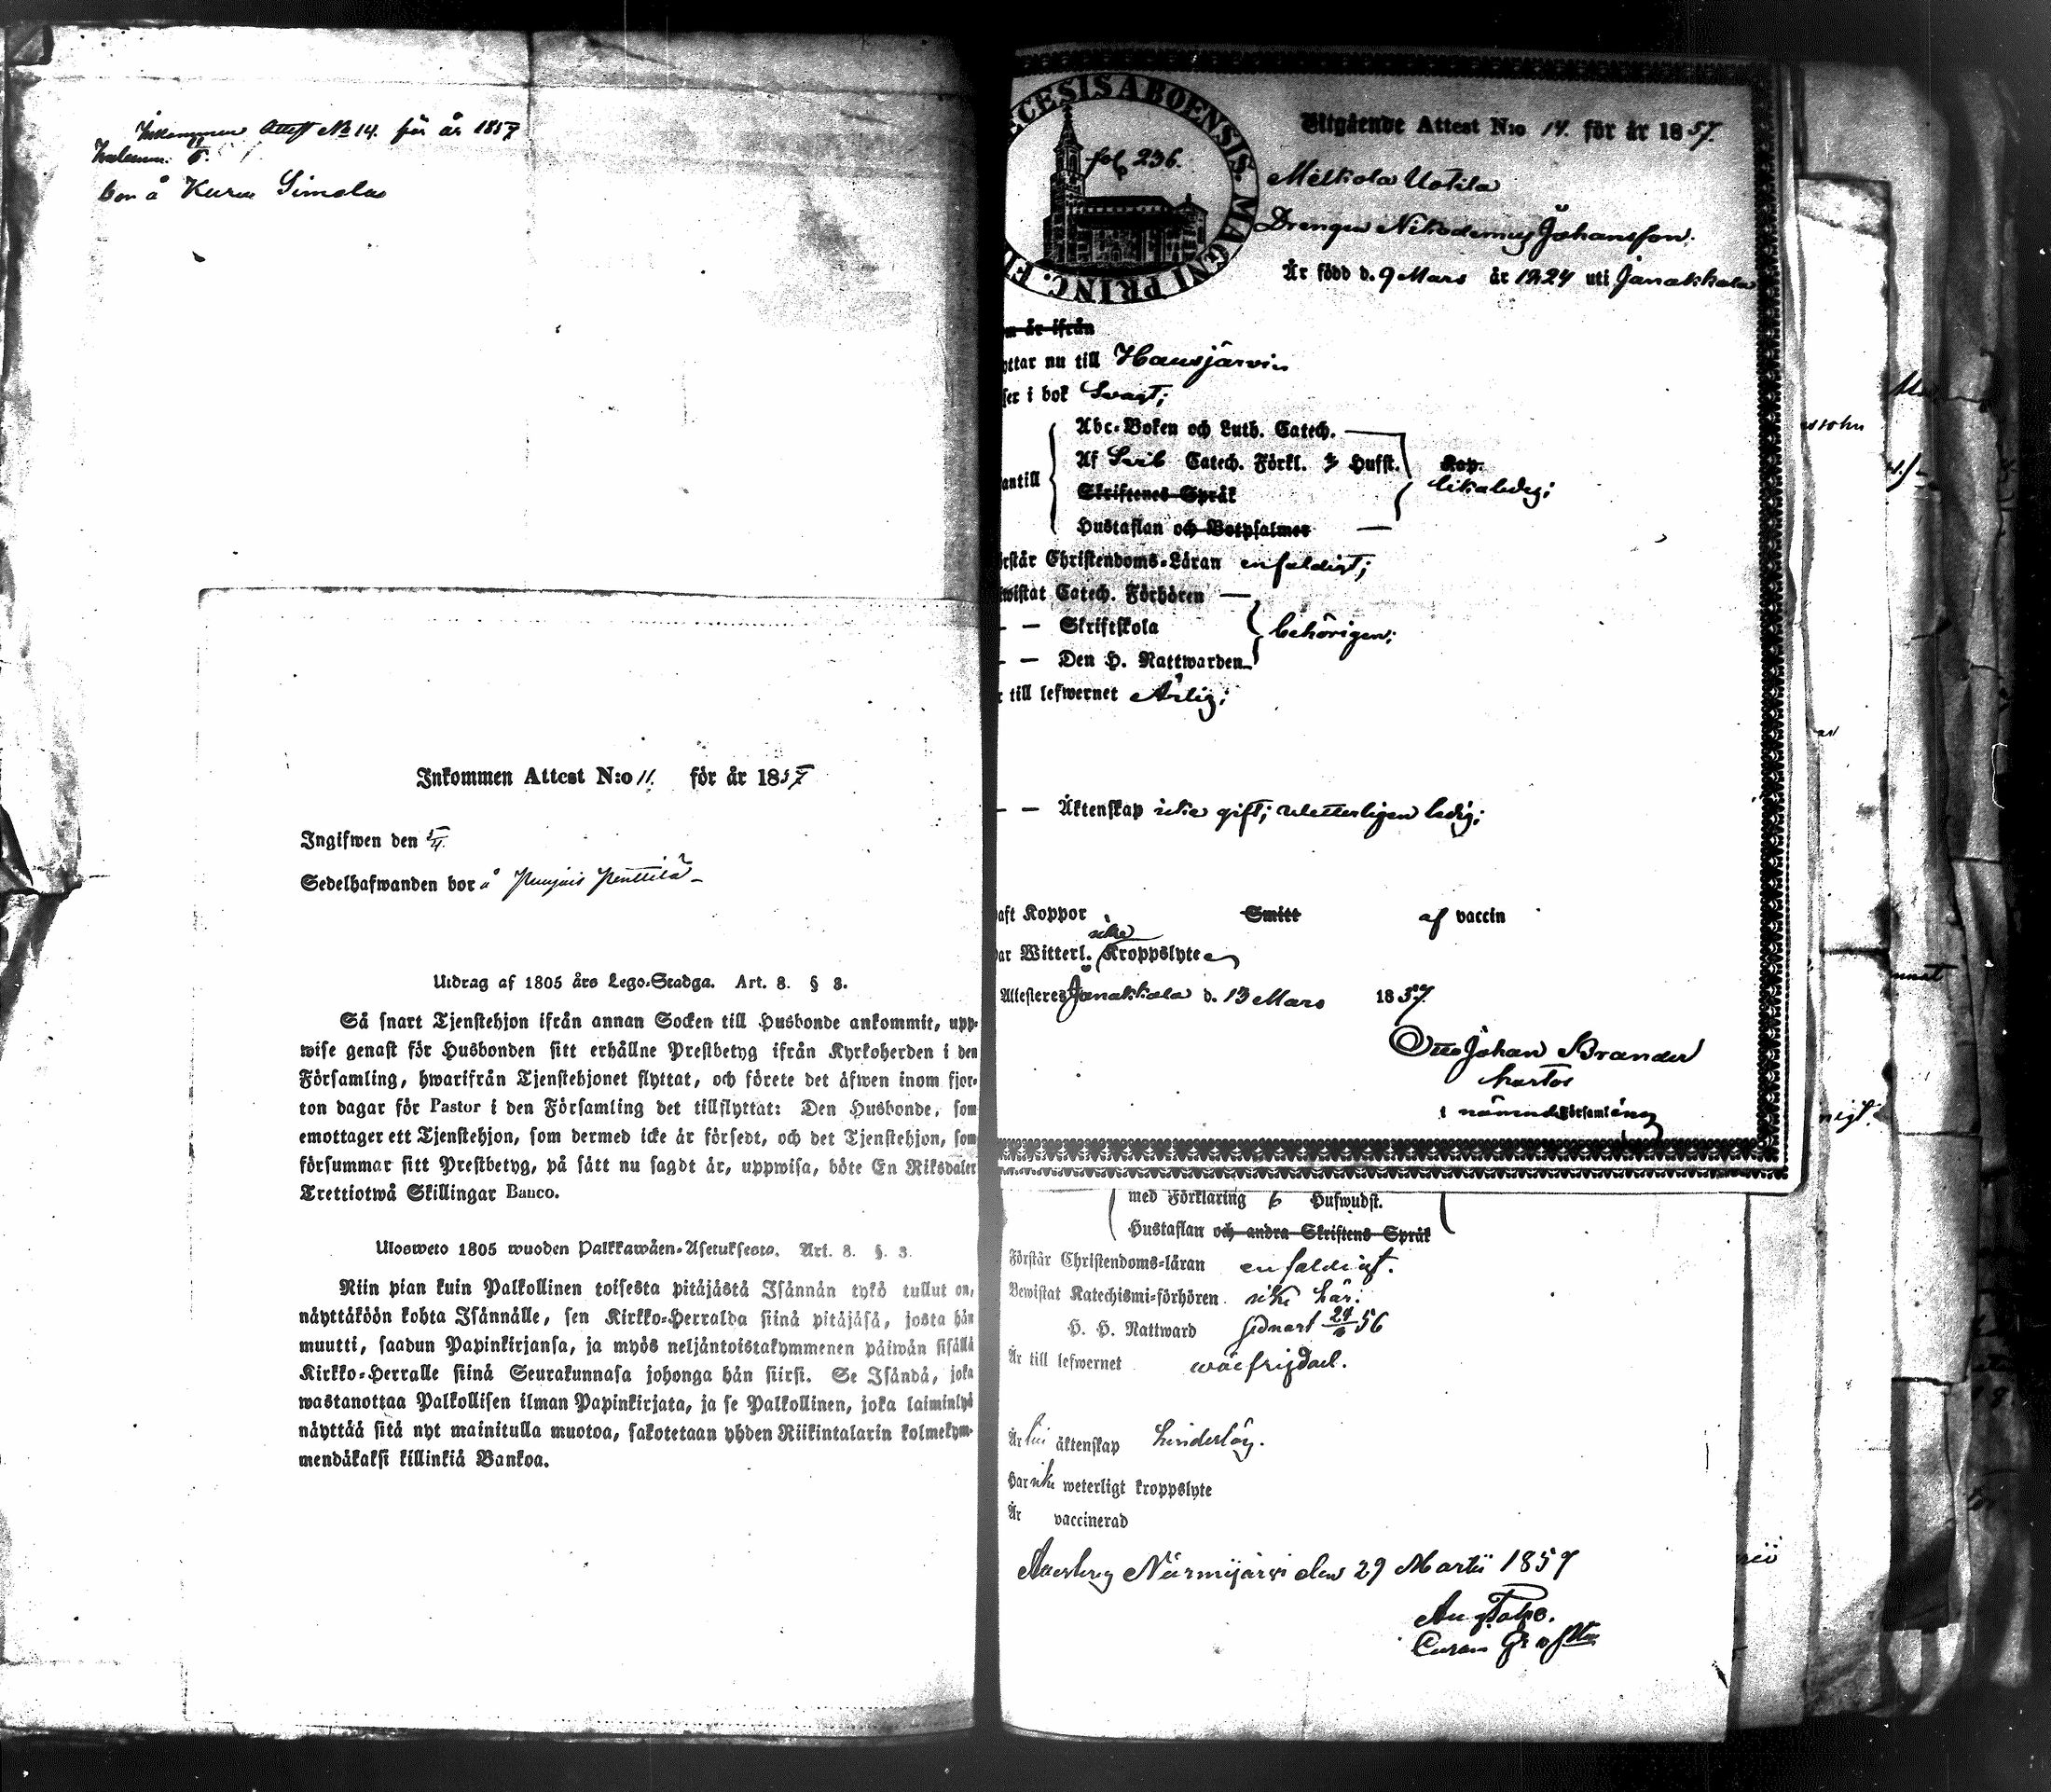 Inkommen Attest No 14. för år 1857
bor å Kuru Simola
Inkommen Attest N:o 11. för år 1857
Ingifwen den
Sedelhafwanden bor å Punjois Penttilä
Utdrag af 1805 års Lego-Stadga. Art. 8. § 3.
Så snart Tjenstehjon ifrån annan Socken till Husbonde ankommit, upp-
wise genast för Husbonden sitt erhållne Prestbetyg ifrån Kyrkoherden i den
Församling, hwarifrån Tjenstehjonet flyttat, och förete det äfwen inom fjor-
ton dagar för Pastor i den Församling det tillflyttat: Den Husbonde, som
emottager ett Tjenstehjon, som dermed icke är försedt, och det Tjenstehjon, som
försummar sitt Prestbetyg, på sätt nu sagdt är, uppwisa, böte En Riksdaler
Trettiotwå Skillingar Banco.
Ulosweto 1805 wuoden Palkkawäen-Asetuksesta. Art. 8. §. 3.
Niin pian kuin Palkollinen toisesta pitäjästä Isännän tykö tullut on,
näyttäköön kohta Isännälle, sen Kirkko-Herralda siinä pitäjäsä, josta hän
muutti, saadun Papinkirjansa, ja myös neljäntoistakymmenen päiwän sisällä
Kirkko-Herralle siinä Seurakunnasa johonga hän siirsi. Se Isändä, joka
wastanottaa Palkollisen ilman Papinkirjata, ja se Palkollinen, joka laiminlyö
näyttää sitä nyt mainitulla muotoa, sakotetaan yhden Riikintalarin kolmekym-
mendäkaksi killinkiä Bankoa.
CESIS ABOENSIS. MAGNI PRINC. FI
fol 236.
Utgående Attest N:o 14. för år 1857.
Melkola Uotila
Drengen Nikodemus Johansson.
Är född d. 9 Mars år 1824 uti Janakkala
m är ifrån
yttar nu till Hausjärvi
ser i bok Svagt;
Abc-Boken och Luth. Catech.
Af Sveb Catech. Förkl. 3 Hufst. Kap.
antill likaledes;
Skriftenes Språk
Hustaflan och Botpsalmer
örstår Christendoms-Läran enfaldigt;
wistat Catech. Förhören
— — Skriftskola behörigen;
— — Den H. Nattwarden
r till lefwernet Ärlig;
— — Äktenskap icke gift; wetterligen ledig;
haft Koppor Smitt af vaccin
icke
har Witterl. Kroppslyte
Attesteres Janakkala d. 13 Mars 1857.
Otto Johan Brander
i nämnde Församling
med Förklaring 6 Hufwudst.
Hustaflan och andra Skriftens Språk
Förstår Christendoms-läran enfaldigt.
Bewistat Katechismi-förhören icke här.
H. H. Nattward sednast 24/6 56
Är till lefwernet wälfrejdad.
Är till äktenskap hinderlös.
Har icke weterligt kroppslyte
Är vaccinerad
Nurmijärvi den 29 Martii 1857